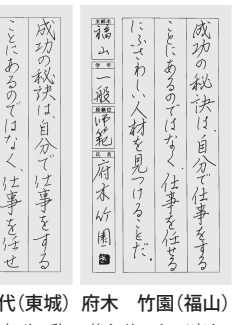 成功の秘訣は、自分で仕事をする
ことにあるのではなく、仕事を任せる
にふさわしい人材を見つけることだ。
支部名
福山
学年
一般
段級位
師範
氏名
府木竹園
成功の秘訣は、自分で仕事をする
ことにあるのではなく、仕事を任せ
代(東城)
府木 竹園(福山)